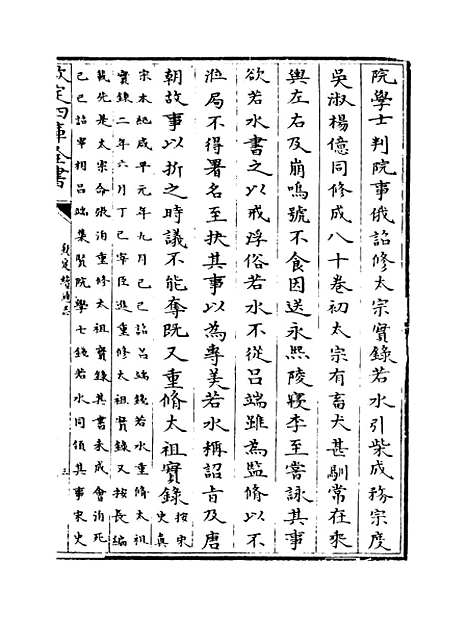 院學士判院事俄詔修太宗實錄若水引柴成務宗度
吳淑楊億同修成八十卷初太宗有畜犬甚馴常在乘
輿左右及崩嗚號不食因送永熙陵寢李至嘗詠其事
欲若水書之以戒浮俗若水不從呂端雖為監脩以不
涖局不得署名至抉其事以為專美若水稱詔旨及唐
朝故事以折之時議不能奪既又重脩太祖實錄按宋史真
宋本紀咸平元年九月己巳詔呂端錢若水重脩太祖
實錄二年六月丁巳宰臣進重修太祖實錄又按長編
載先是太宗命張洎重修太祖實錄其書未成會洎死
己巳詔宰相呂端集賢院學士錢若水同領其事宋史
欽定四庫全書
三